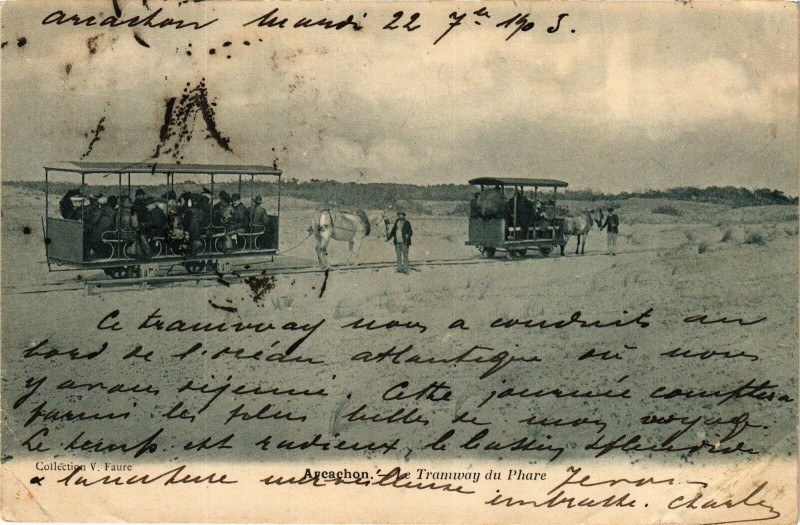 Arcachon mardi 22 7bre 1903.
Ce tramway nous a conduits au
bord de l'océan atlantique où nous
y avons déjeuné. Cette journée comptera
parmi les plus belles de mon voyage.
Le temps est radieux, le bassin splendide
Collection V. Faure
Arcachon. - Le Tramway du Phare
& la nature merveilleuse
embrasse. Charles